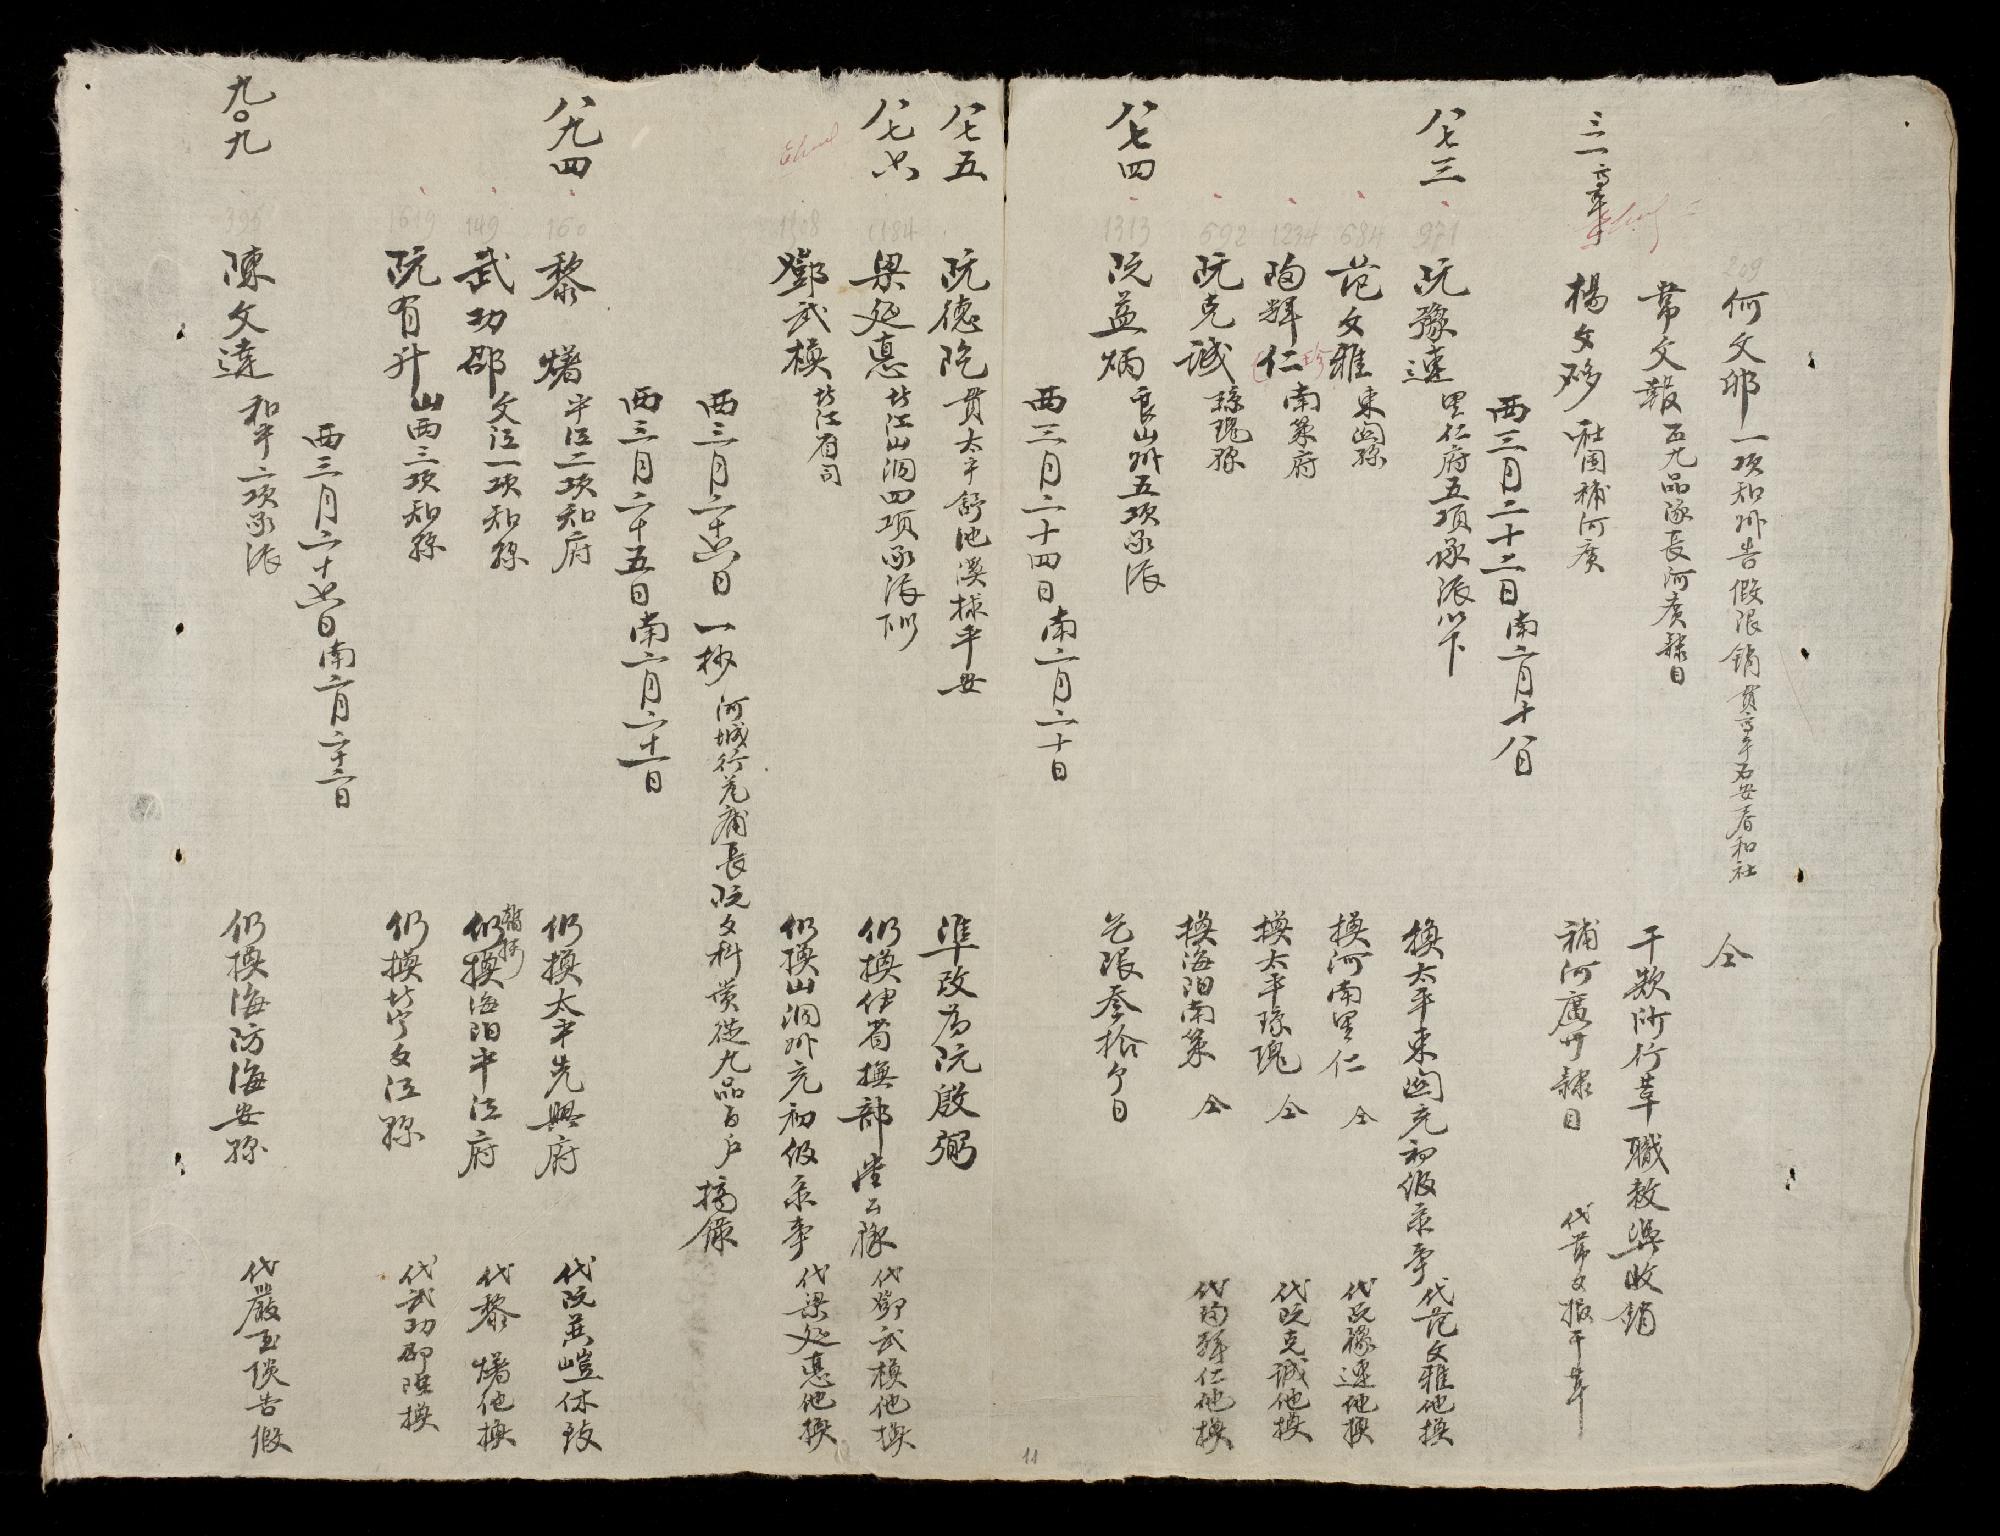 何文耶 一項知州告假限銷 貫高平石安春和社 仝
常文報 五九品隊長河廣隸目 干欵所行革職敕與收銷
三一 高平 楊文移 補河廣 補河廣州隸目 代常文报干革
西三月二十二日南二月十八日
八七三 971 阮豫連 里仁府五項承派以下 換太平東關充初級录事 代范文雅他換
684 范文雅 東關縣 換河南里仁 仝 代阮豫連他換
1234 陶輝仁 南策府 換太平瓊瑰 仝 代阮克誠他換
592 阮克誠 瓊瑰縣 換海陽南策 仝 代陶輝仁他換
八七四 1313 阮益炳 良山州五項承派 乞限叁拾个日
西三月二十四日南二月二十日
八七五 阮德阮 貫太平舒池溪捄平安 準改為阮殷弼
八七六 1184 梁延惠 北江山洞四項承派下州 仍換伊省撫部堂公椽 代鄧武模他換
1108 鄧武模 北江省司 仍換山洞州充初級录事 代梁延惠他換
西三月二十六日 一抄 河城行芄庯長阮文科賞從九品百户 摘錄
西三月二十五日南二月二十一日
八九四 160 黎㷮 平江二項知府 仍換太平先興府 代阮 嵦休致
149 武功邵 文江一項知縣 仍換海陽平江府 代黎㷮他換
1619 阮有升 山西三項知縣 仍換北寧文江縣 代武功邵陞換
西三月二十六日南二月二十二日
九〇九 395 陳文達 和平二項承派 仍換海防海安縣 代嚴玉 告假
11